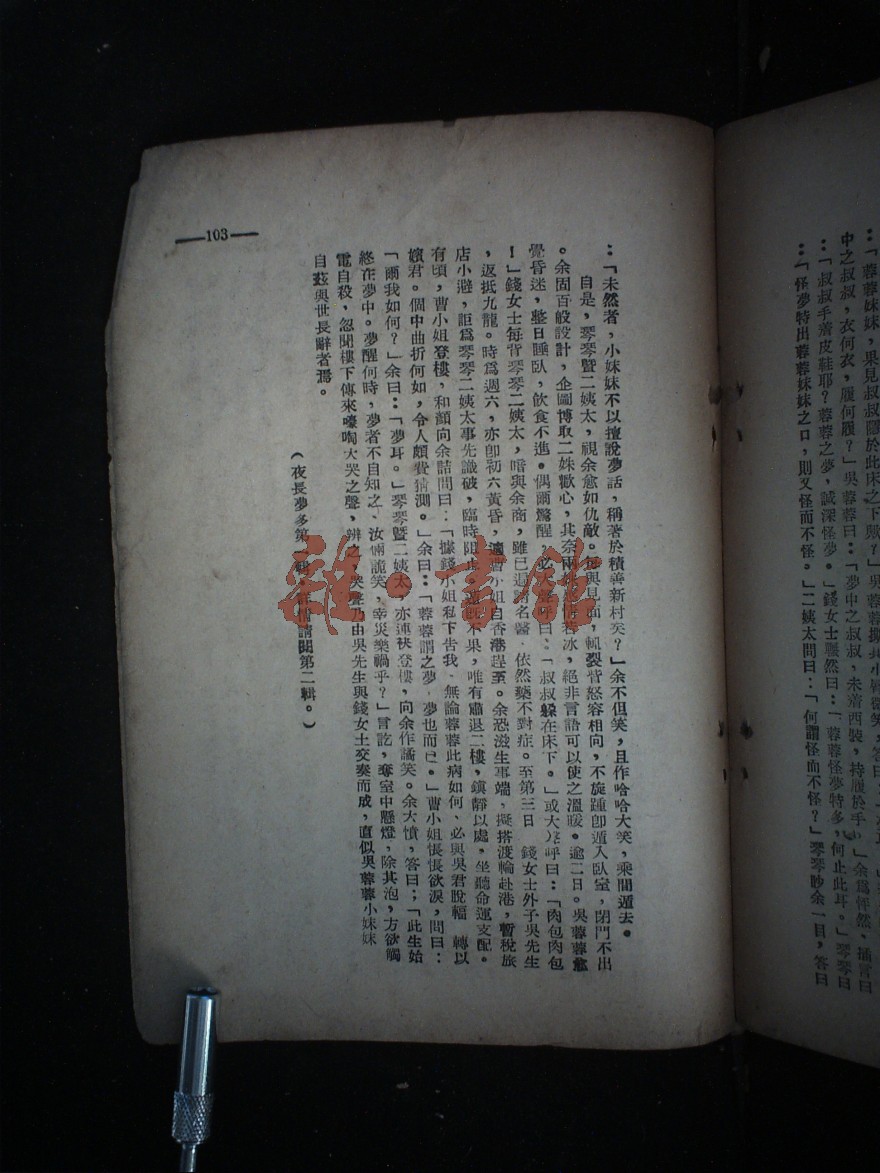 ：「蓉蓉妹妹，果見叔叔
中之叔叔，衣何衣，履何履？」吳蓉蓉曰：「夢中之叔叔，未着西裝，持履於手。」余爲怦然，插言曰
：「叔叔手着皮鞋耶？蓉蓉之夢，誠深怪夢。」錢女士囅然曰：「蓉蓉怪夢特多，何止此耳。」琴琴曰
：「怪夢特出蓉蓉妹妹之口，則又怪而不怪。」二姨太問曰：「何謂怪而不怪？」琴琴眇余一目，答曰
：「未然者，小妹妹不以擅說夢話，稱著於積善新村矣？」余不但笑，且作哈哈大笑，乘間遁去。
自是，琴琴暨二姨太，視余愈如仇敵。每與見面，輒裂眥怒容相向，不旋踵卽遁入臥室，閉門不出
。余固百般設計，企圖博取二姝歡心，其奈兩姝意情若冰，絕非言語可以使之溫暖。逾二日。吳蓉蓉
覺昏迷，整日睡臥，飲食不進。偶爾驚醒，必大聲呼曰：「叔叔躲在床下。」或大呼曰：「肉包肉包
！」錢女士每背琴琴二姨太，暗與余商，雖已延聘名醫，依然藥不對症。至第三日，錢女士外子吳先生
，返抵九龍。時爲週六，亦卽初六黃昏，適曹小姐自香港趕至。余恐滋生事端，擬搭渡輪赴港，暫稅旅
店小避，詎爲琴琴二姨太事先識破，臨時阻止，遁此不果，唯有肅退二樓，鎭靜以處，坐聽命運支配。
有頃，曹小姐登樓，和顏向余詰問曰：「據錢小姐私下告我，無論蓉蓉此病如何、必與吳君脫輻，轉以
嬪君。個中曲折何如，令人頗費猜測。」余曰：「蓉蓉謂之夢，夢也而已。」曹小姐悵悵欲淚，問曰：
「爾我如何？」余曰：「夢耳。」琴琴暨二姨太，亦連袂登樓，向余作譎笑。余大憤，答曰：「此生始
終在夢中。夢醒何時，夢者不自知之、汝倆詭笑，幸災樂禍乎？」言訖，奪室中懸燈，除其泡，方欲觸
電自殺，忽聞樓下傳來嚎啕大哭之聲，辨之，哭聲乃由吳先生與錢女士交奏而成，直似吳蓉蓉小妹妹
自茲與世長辭者焉。
（夜長夢多第一輯，詳情請閱第二輯。）
—103—
雜·書飲